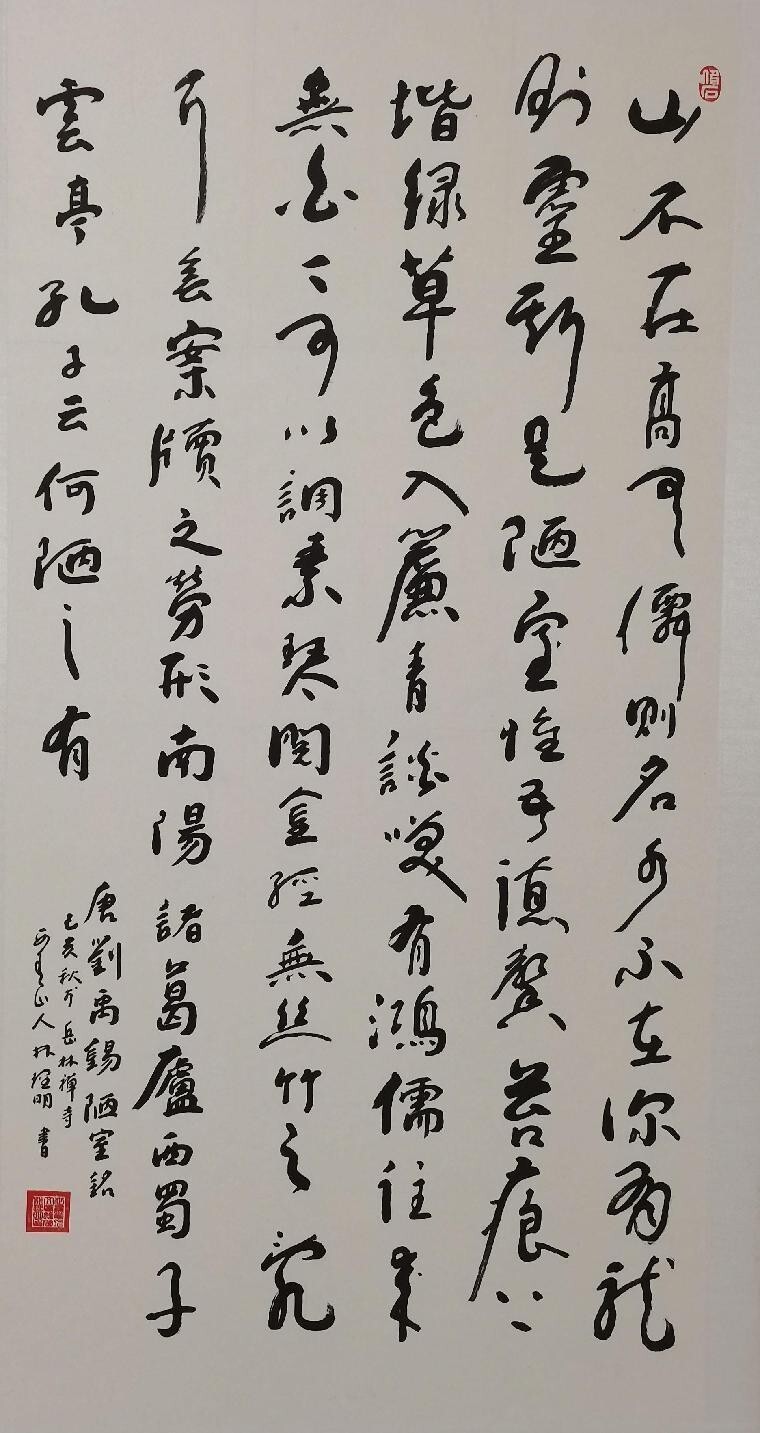 山不在高有僊則名水不在深有龍
則靈斯是陋室惟吾德馨苔痕上
堦緑草色入簾青談笑有鴻儒往來
無白丁可以調素琴閱金經無絲竹之亂
耳無案牘之勞形南陽諸葛廬西蜀子
雲亭孔子云何陋之有
唐劉禹錫陋室銘
己亥秋於岳林禪寺
山人林明書